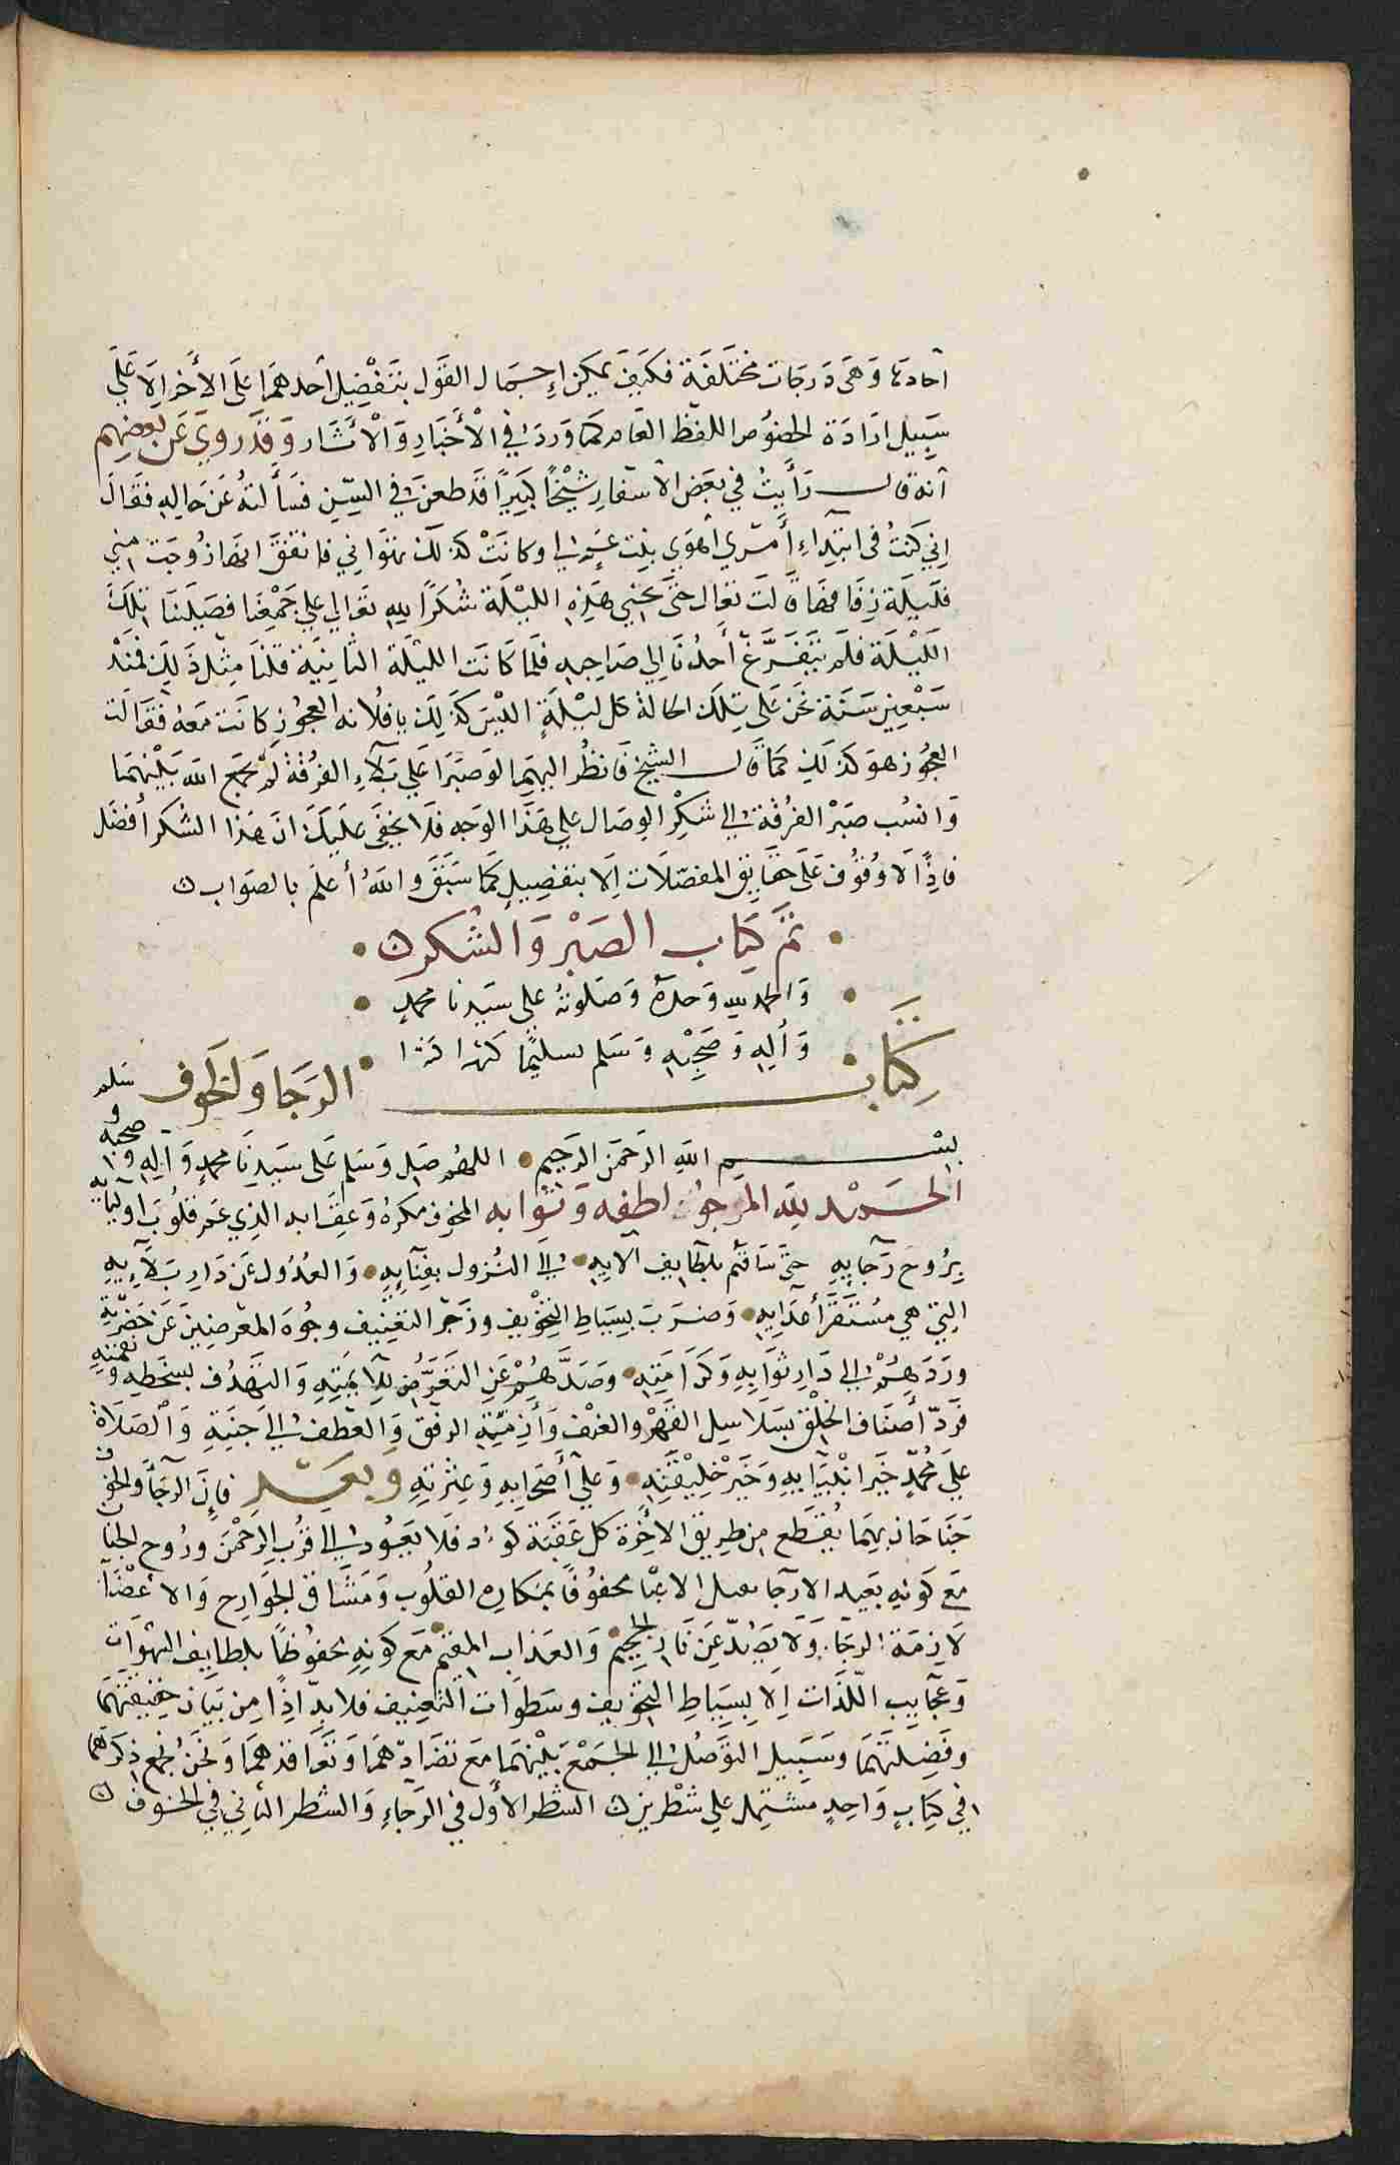 آحادها وهي درجات مختلفة فكيف يمكن إجمال القول بتفضيل أحدهما على الأخر إلا على
سبيل ارادة الخصوص اللفظ العام كما ورد في الأخبار والأثار وقد روي عن بعضهم
أنه قال رأيت في بعض الأسفار شيخا كبيرا قد طعن في السن فسألته عن حاله فقال
إني كنت في ابتداء أمري أهوى بنت عم لي وكانت كذلك تهواني فاتفق انها زوجت مني
فليلة زفافها قالت تعال حتى نحيي هذه الليلة شكرا لله تعالى على جمعنا فصلينا تلك
الليلة فلم يتفرغ أحدنا إلى صاحبه فلما كانت الليلة الثانية قلنا مثل ذلك فمنذ
سبعين سنة نحن على تلك الحالة كل ليلة اليس كذلك يا فلانه العجوز كانت معه فقالت
العجوز هو كذلك كما قال الشيخ فانظر اليهما لو صبرا على بلاء الفرقة لو لم يجمع الله بينهما
وانسب صبر الفرقة إلى شكر الوصال على هذا الوجه فلا يخفى عليك ان هذا الشكر أفضل
فاذا لا وقوف على حقايق المفضلات إلا بتفصيل كما سبق والله أعلم بالصواب
تم كتاب الصبر والشكر
والحمد لله وحده وصلوته على سيدنا محمد
وأله وصحبه وسلم تسليما كثيرا كثيرا
كتاب الرجا والخوف
بسم الله الرحمن الرحيم اللهم صل وسلم على سيدنا محمد وآله وصحبه وسلم
الحمد لله المرجو لطفه وثوابه المخوف مكره وعقابه الذي عمر قلوب اوليائه
بروح رجائه حتى ساقهم بلطايف آلايه إلى النزول بفنائه والعدول عن دار بلائه
التي هي مستقر أعدائه وضرب بسياط التخويف وزجر التعنيف وجوه المعرضين عن حضرته
وردهم إلى دار ثوابه وكرامته وصدهم عن التعرض للائمته والتهدف لسخطه ونقمته
قود أصناف الخلق بسلاسل القهر والعنف وأزمة الرفق والعطف إلى جنته والصلاة
على محمد خير انبيائه وخير خليقته وعلى أصحابه وعترته وبعد فإن الرجا والخوف
جناحان بهما يقطع من طريق الأخرة كل عقبة كود فلا يعود إلى قرب الرحمن وروح الجنا
مع كونه بعيد الارجا ثقيل الاعبا محفوفا بمكاره القلوب ومشاق الجوارح والاعضا
لازمة الرجا ولا يصد عن نار الجحيم والعذاب المقيم مع كونه محفوظا بلطايف الشهوات
وعجايب اللذات إلا بسياط التخويف وسطوات التعنيف فلا بد اذا من بيان حقيقتهما
وفضيلتهما وسبيل التوصل إلى الجمع بينهما مع تضادهما وتعاندهما ونحن نجمع ذكرهما
في كتاب واحد مشتمل على شطرين الشطر الأول في الرجاء والشطر الثاني في الخوف